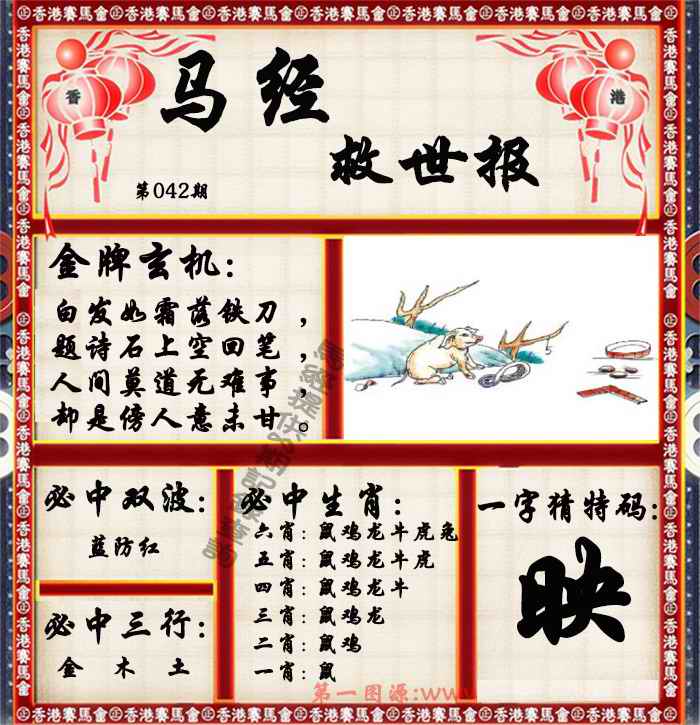 香港賽馬會
香 港
马经
救世报
第042期
金牌玄机:
白发如霜落铁刀，
题诗石上空回笔，
人间莫道死难事，
却是傍人意未甘。
必中双波:
蓝防红
必中三行:
金 木 土
必中生肖:
六肖: 鼠鸡龙牛虎兔
五肖: 鼠鸡龙牛虎
四肖: 鼠鸡龙牛
三肖: 鼠鸡龙
二肖: 鼠鸡
一肖: 鼠
一字猜特码:
映
第一图源:www